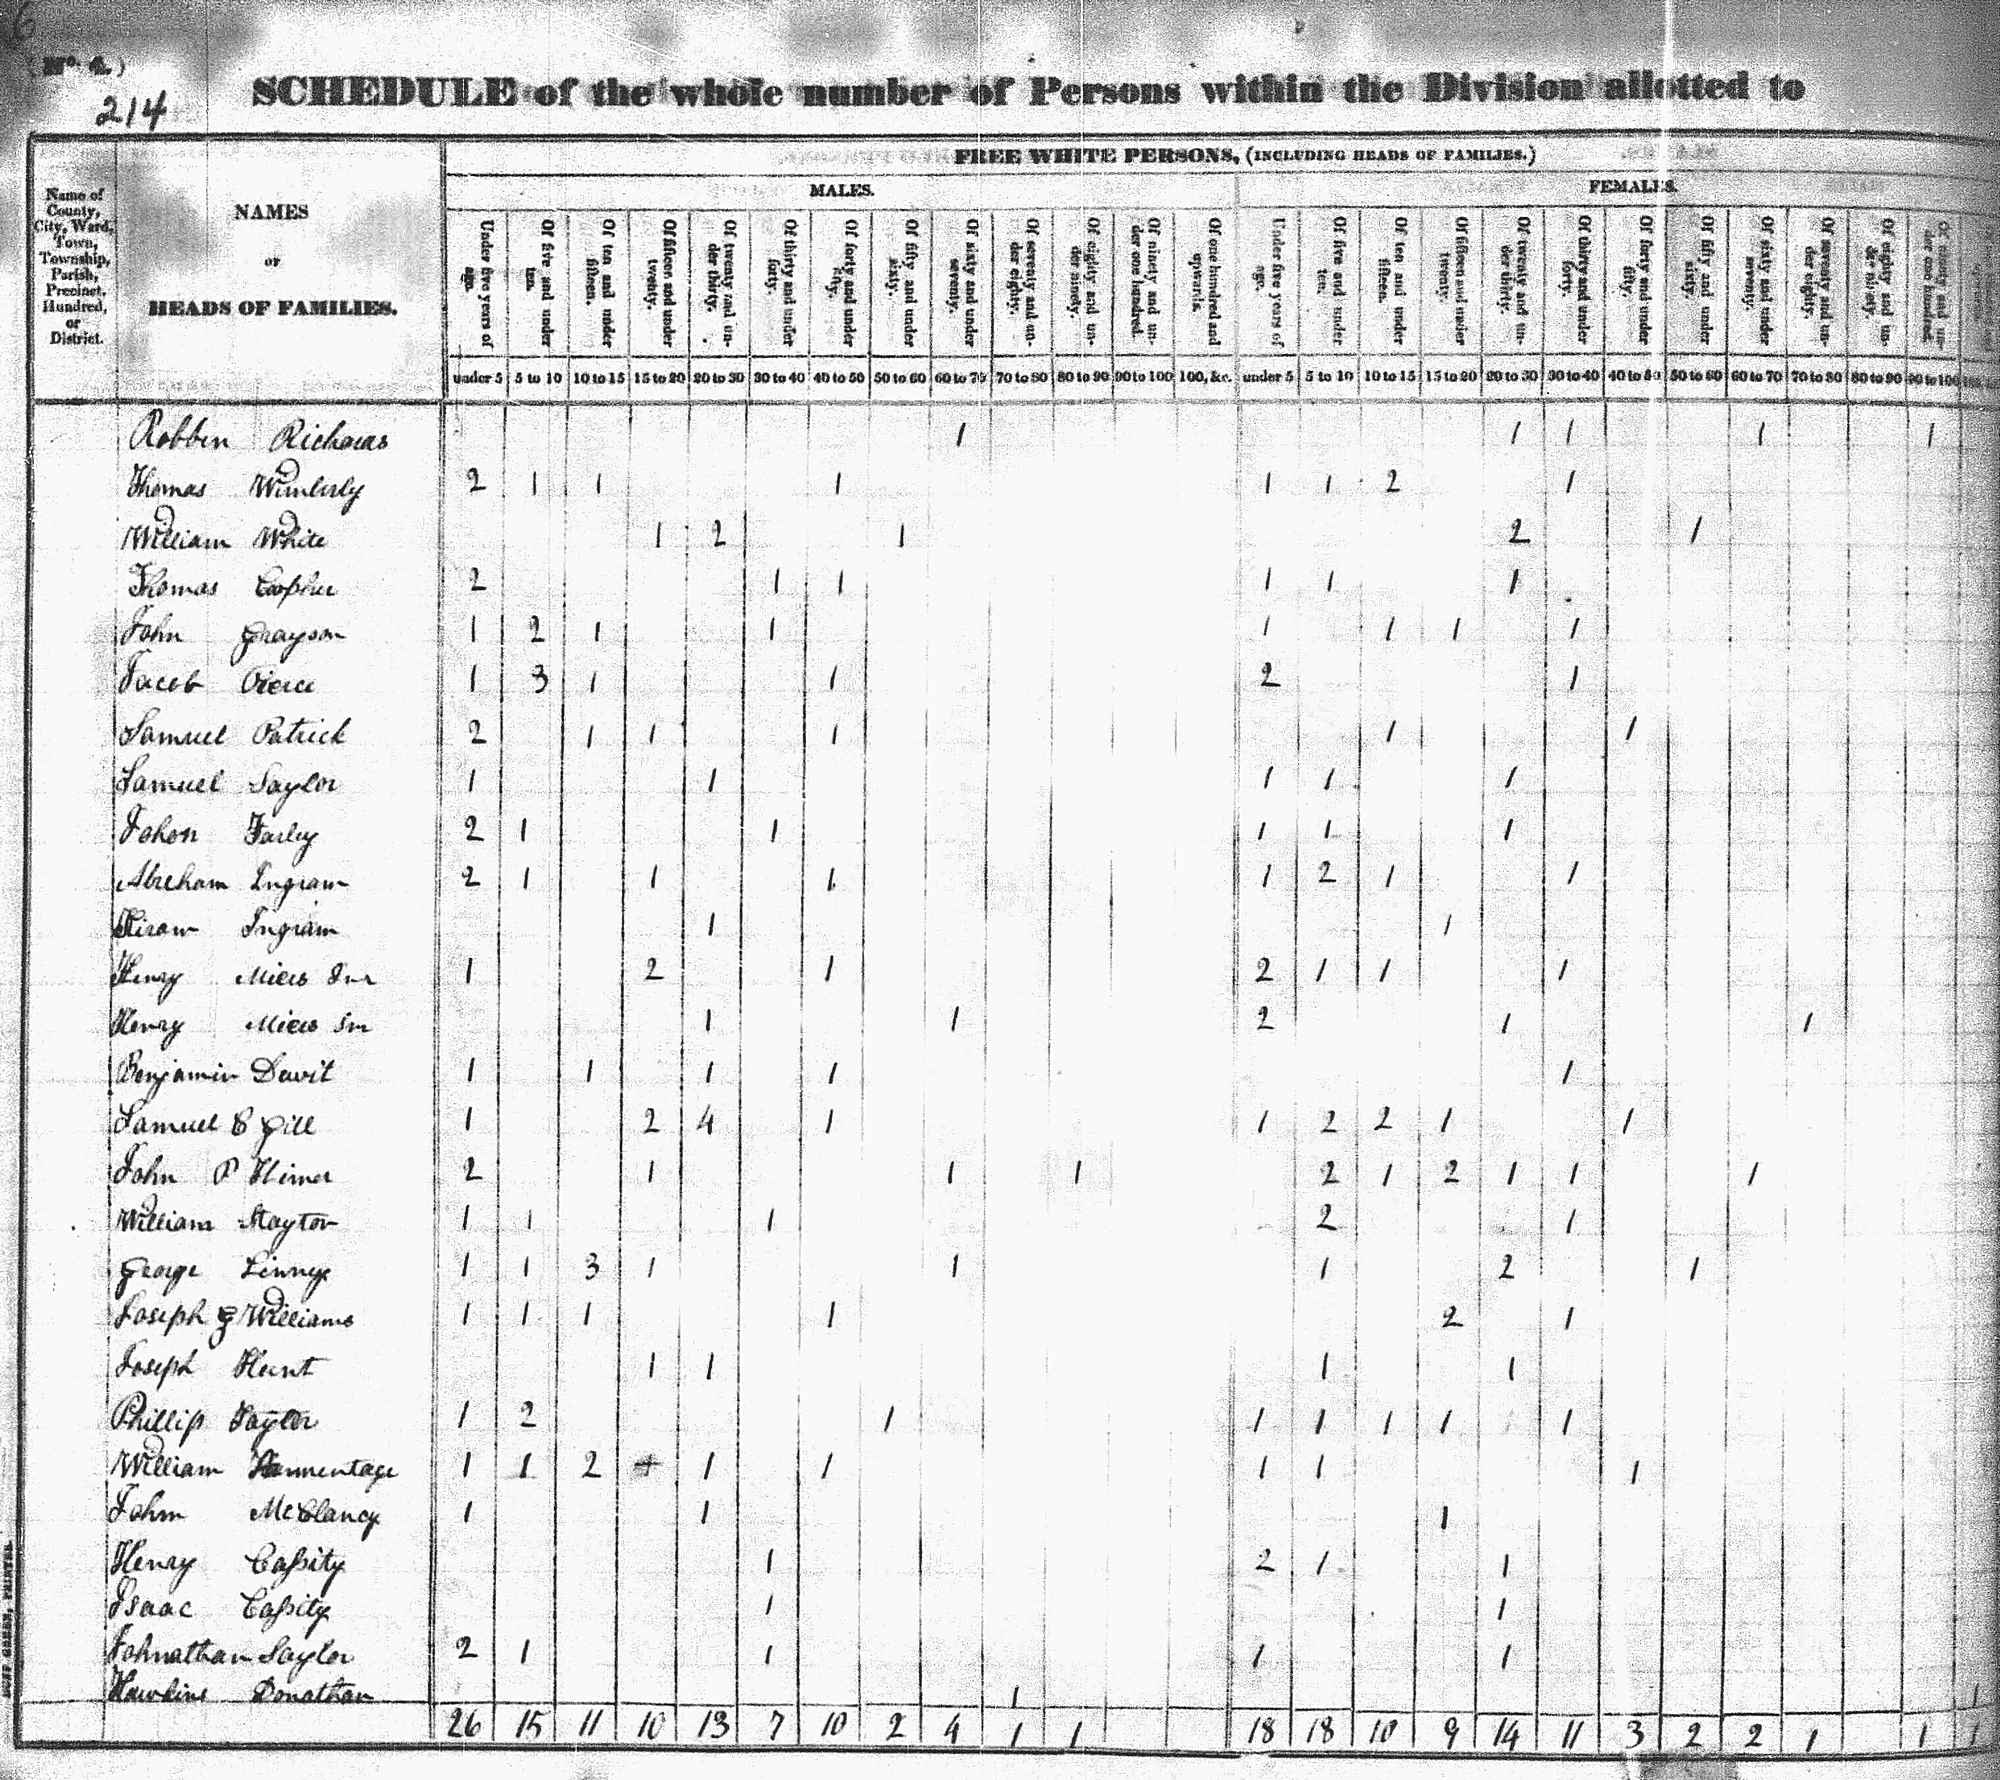 No. 4.)
214
SCHEDULE of the whole number of Persons within the Division allotted to
Name of County, City, Ward, Town, Township, Parish, Precinct, Hundred, or District.
NAMES
or
HEADS OF FAMILIES.
FREE WHITE PERSONS, (INCLUDING HEADS OF FAMILIES.)
MALES. FEMALES.
Under five years of age. Of five and under ten. Of ten and under fifteen. Of fifteen and under twenty. Of twenty and under thirty. Of thirty and under forty. Of forty and under fifty. Of fifty and under sixty. Of sixty and under seventy. Of seventy and under eighty. Of eighty and under ninety. Of ninety and under one hundred. Of one hundred and upwards. Under five years of age. Of five and under ten. Of ten and under fifteen. Of fifteen and under twenty. Of twenty and under thirty. Of thirty and under forty. Of forty and under fifty. Of fifty and under sixty. Of sixty and under seventy. Of seventy and under eighty. Of eighty and under ninety. Of ninety and under one hundred.
under 5 5 to 10 10 to 15 15 to 20 20 to 30 30 to 40 40 to 50 50 to 60 60 to 70 70 to 80 80 to 90 90 to 100 100, &c. under 5 5 to 10 10 to 15 15 to 20 20 to 30 30 to 40 40 to 50 50 to 60 60 to 70 70 to 80 80 to 90 90 to 100
Robbin 1 1 1 1 1
Thomas Wimberly 2 1 1 1 1 1 2 1
William White 1 2 1 2 1
Thomas 2 1 1 1 1 1
John Grayson 1 2 1 1 1 1 1 1
Jacob Pierce 1 3 1 1 2 1
Samuel Patrick 2 1 1 1 1 1
Samuel Saylor 1 1 1 1 1
Johon Farley 2 1 1 1 1 1
Abreham Ingram 2 1 1 1 1 2 1 1
Hiram Ingram 1 1
Henry 1 2 1 2 1 1 1
Henry 1 1 2 1 1
Benjamin Davit 1 1 1 1 1
Samuel C Gill 1 2 4 1 1 2 2 1 1
John P 2 1 1 1 2 1 2 1 1 1
William Stayton 1 1 1 2 1
George 1 1 3 1 1 1 2 1
Joseph G Williams 1 1 1 1 2 1
Joseph Hunt 1 1 1 1
Phillip Taylor 1 2 1 1 1 1 1 1
William 1 1 2 + 1 1 1 1 1
John McClancy 1 1 1
Henry Caſsity 1 2 1 1
Isaac Caſsity 1 1
Johnathan Saylor 2 1 1 1 1
Hawkins Donathan 1 1
26 15 11 10 13 7 10 2 4 1 1 18 18 10 9 14 11 3 2 2 1 1 1
DUFF GREEN, PRINTER.